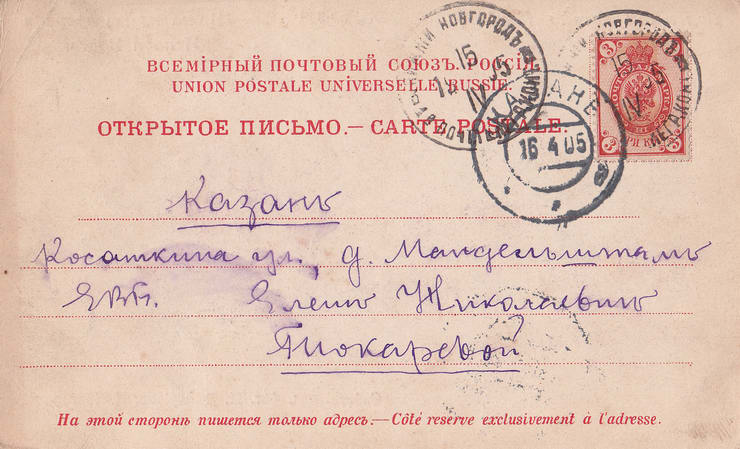 ВСЕМІРНЫЙ ПОЧТОВЫЙ СОЮЗЪ. РОССІЯ.
UNION POSTALE UNIVERSELLE. RUSSIE.
ОТКРЫТОЕ ПИСЬМО.—CARTE POSTALE.
НОВГОРОДЪ
15
IV
НОВГОРОДЪ
15
IV
3 3
16 4 05
Казань
Косаткина ул., д. Мандельштамъ
ЕВБ. Еленѣ Николаевнѣ
Токаревой
На этой сторонѣ пишется только адресъ.—Côté reserve exclusivement à l'adresse.